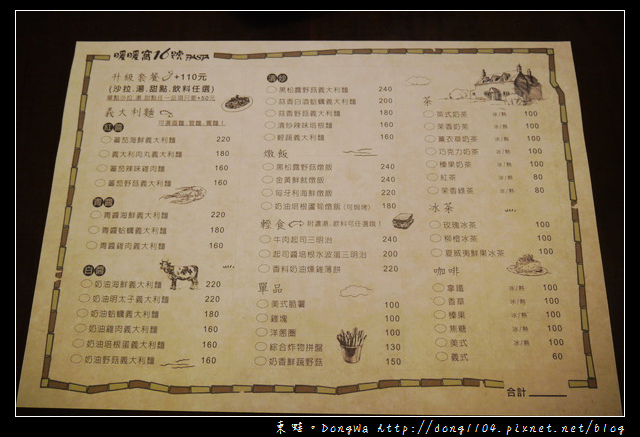 暖暖窩16號 PASTA
升級套餐 +110元
(沙拉.湯.甜點.飲料任選)
義大利麵
紅醬
蕃茄海鮮義大利麵 220
義大利肉丸義大利麵 180
蕃茄辣味雞肉麵 160
蕃茄野菇義大利麵 160
青醬
青醬海鮮義大利麵 220
青醬蛤蠣義大利麵 180
青醬雞肉義大利麵 160
白醬
奶油海鮮義大利麵 220
奶油明太子義大利麵 220
奶油蛤蠣義大利麵 180
奶油雞肉義大利麵 160
奶油培根蛋義大利麵 160
奶油野菇義大利麵 160
清炒
黑松露野菇義大利麵 240
蒜香白酒蛤蠣義大利麵 200
蒜香野菇義大利麵 180
清炒辣味培根麵 160
鮮蔬義大利麵 160
燉飯
黑松露野菇燉飯 240
金黃鮮魷燉飯 240
匈牙利海鮮燉飯 220
奶油培根蘆筍燉飯(可焗烤) 200
輕食 附濃湯.飲料可任選哦!
牛肉起司三明治 240
起司醬培根水波蛋三明治 200
香料奶油燻雞薄餅 220
單品
美式脆薯 100
雞塊 100
洋蔥圈 100
綜合炸物拼盤 130
奶香鮮蔬野菇 150
茶
英式奶茶 冰/熱 100
茉香奶茶 冰/熱 100
薰衣草奶茶 冰/熱 100
巧克力奶茶 冰/熱 100
榛果奶茶 冰/熱 100
紅茶 冰/熱 80
茉香綠茶 冰/熱 80
冰茶
玫瑰冰茶 100
柳橙冰茶 100
夏威夷鮮果冰茶 100
咖啡
拿鐵 冰/熱 100
香草 冰/熱 100
榛果 冰/熱 100
焦糖 冰/熱 100
美式 冰/熱 100
義式 60
合計
東蛙。DongWa http://dong1104.pixnet.net/blog